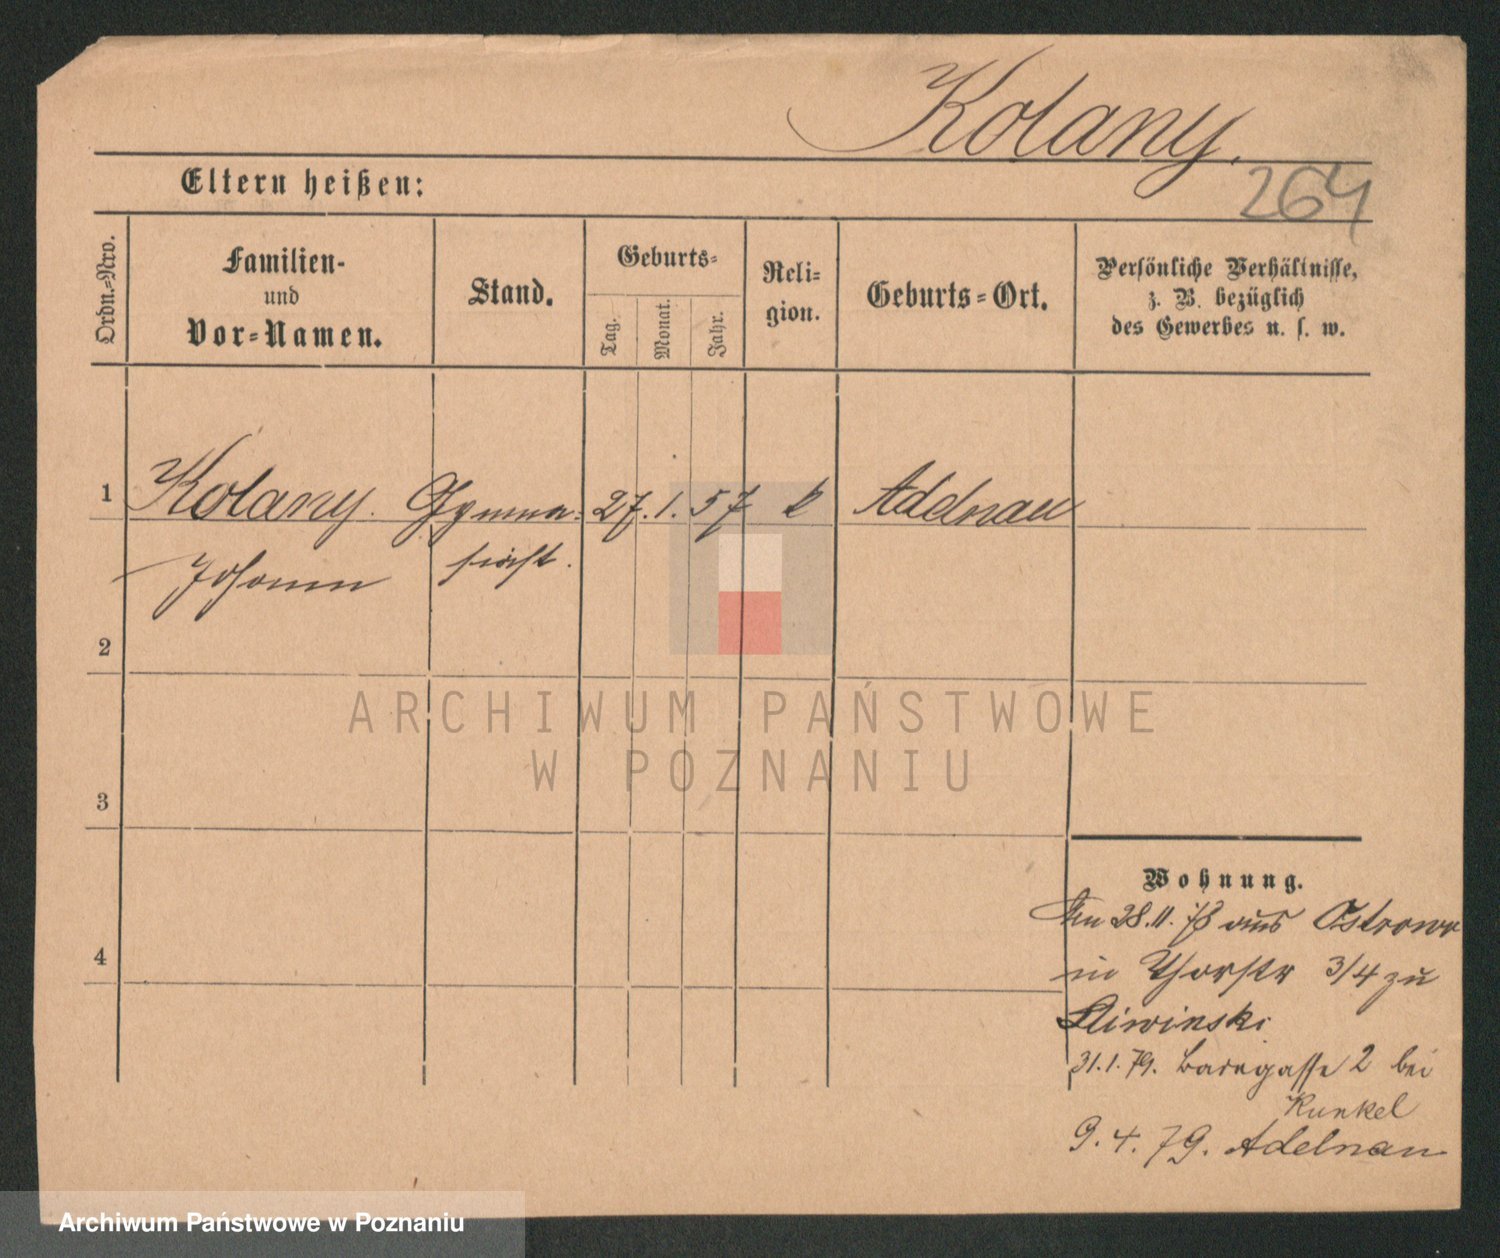 Kolany.
264
Eltern heißen:
Ordn.=Nro.
Familien-
und
Vor=Namen.
Stand.
Geburts=
Tag.
Monat.
Jahr.
Reli=
gion.
Geburts=Ort.
Persönliche Verhältnisse,
z. B. bezüglich
des Gewerbes u. s. w.
1
Kolany. Gymna- 27. 1. 57 k Adelnau
Johann siast.
2
3
4
Wohnung.
28.11.78 aus Ostrowo
in Thorstr 3/4 zu
Sliwinski
31.1.79. 2 bei
Kunkel
9.4.79. Adelnau
ARCHIWUM PAŃSTWOWE
W POZNANIU
Archiwum Państwowe w Poznaniu